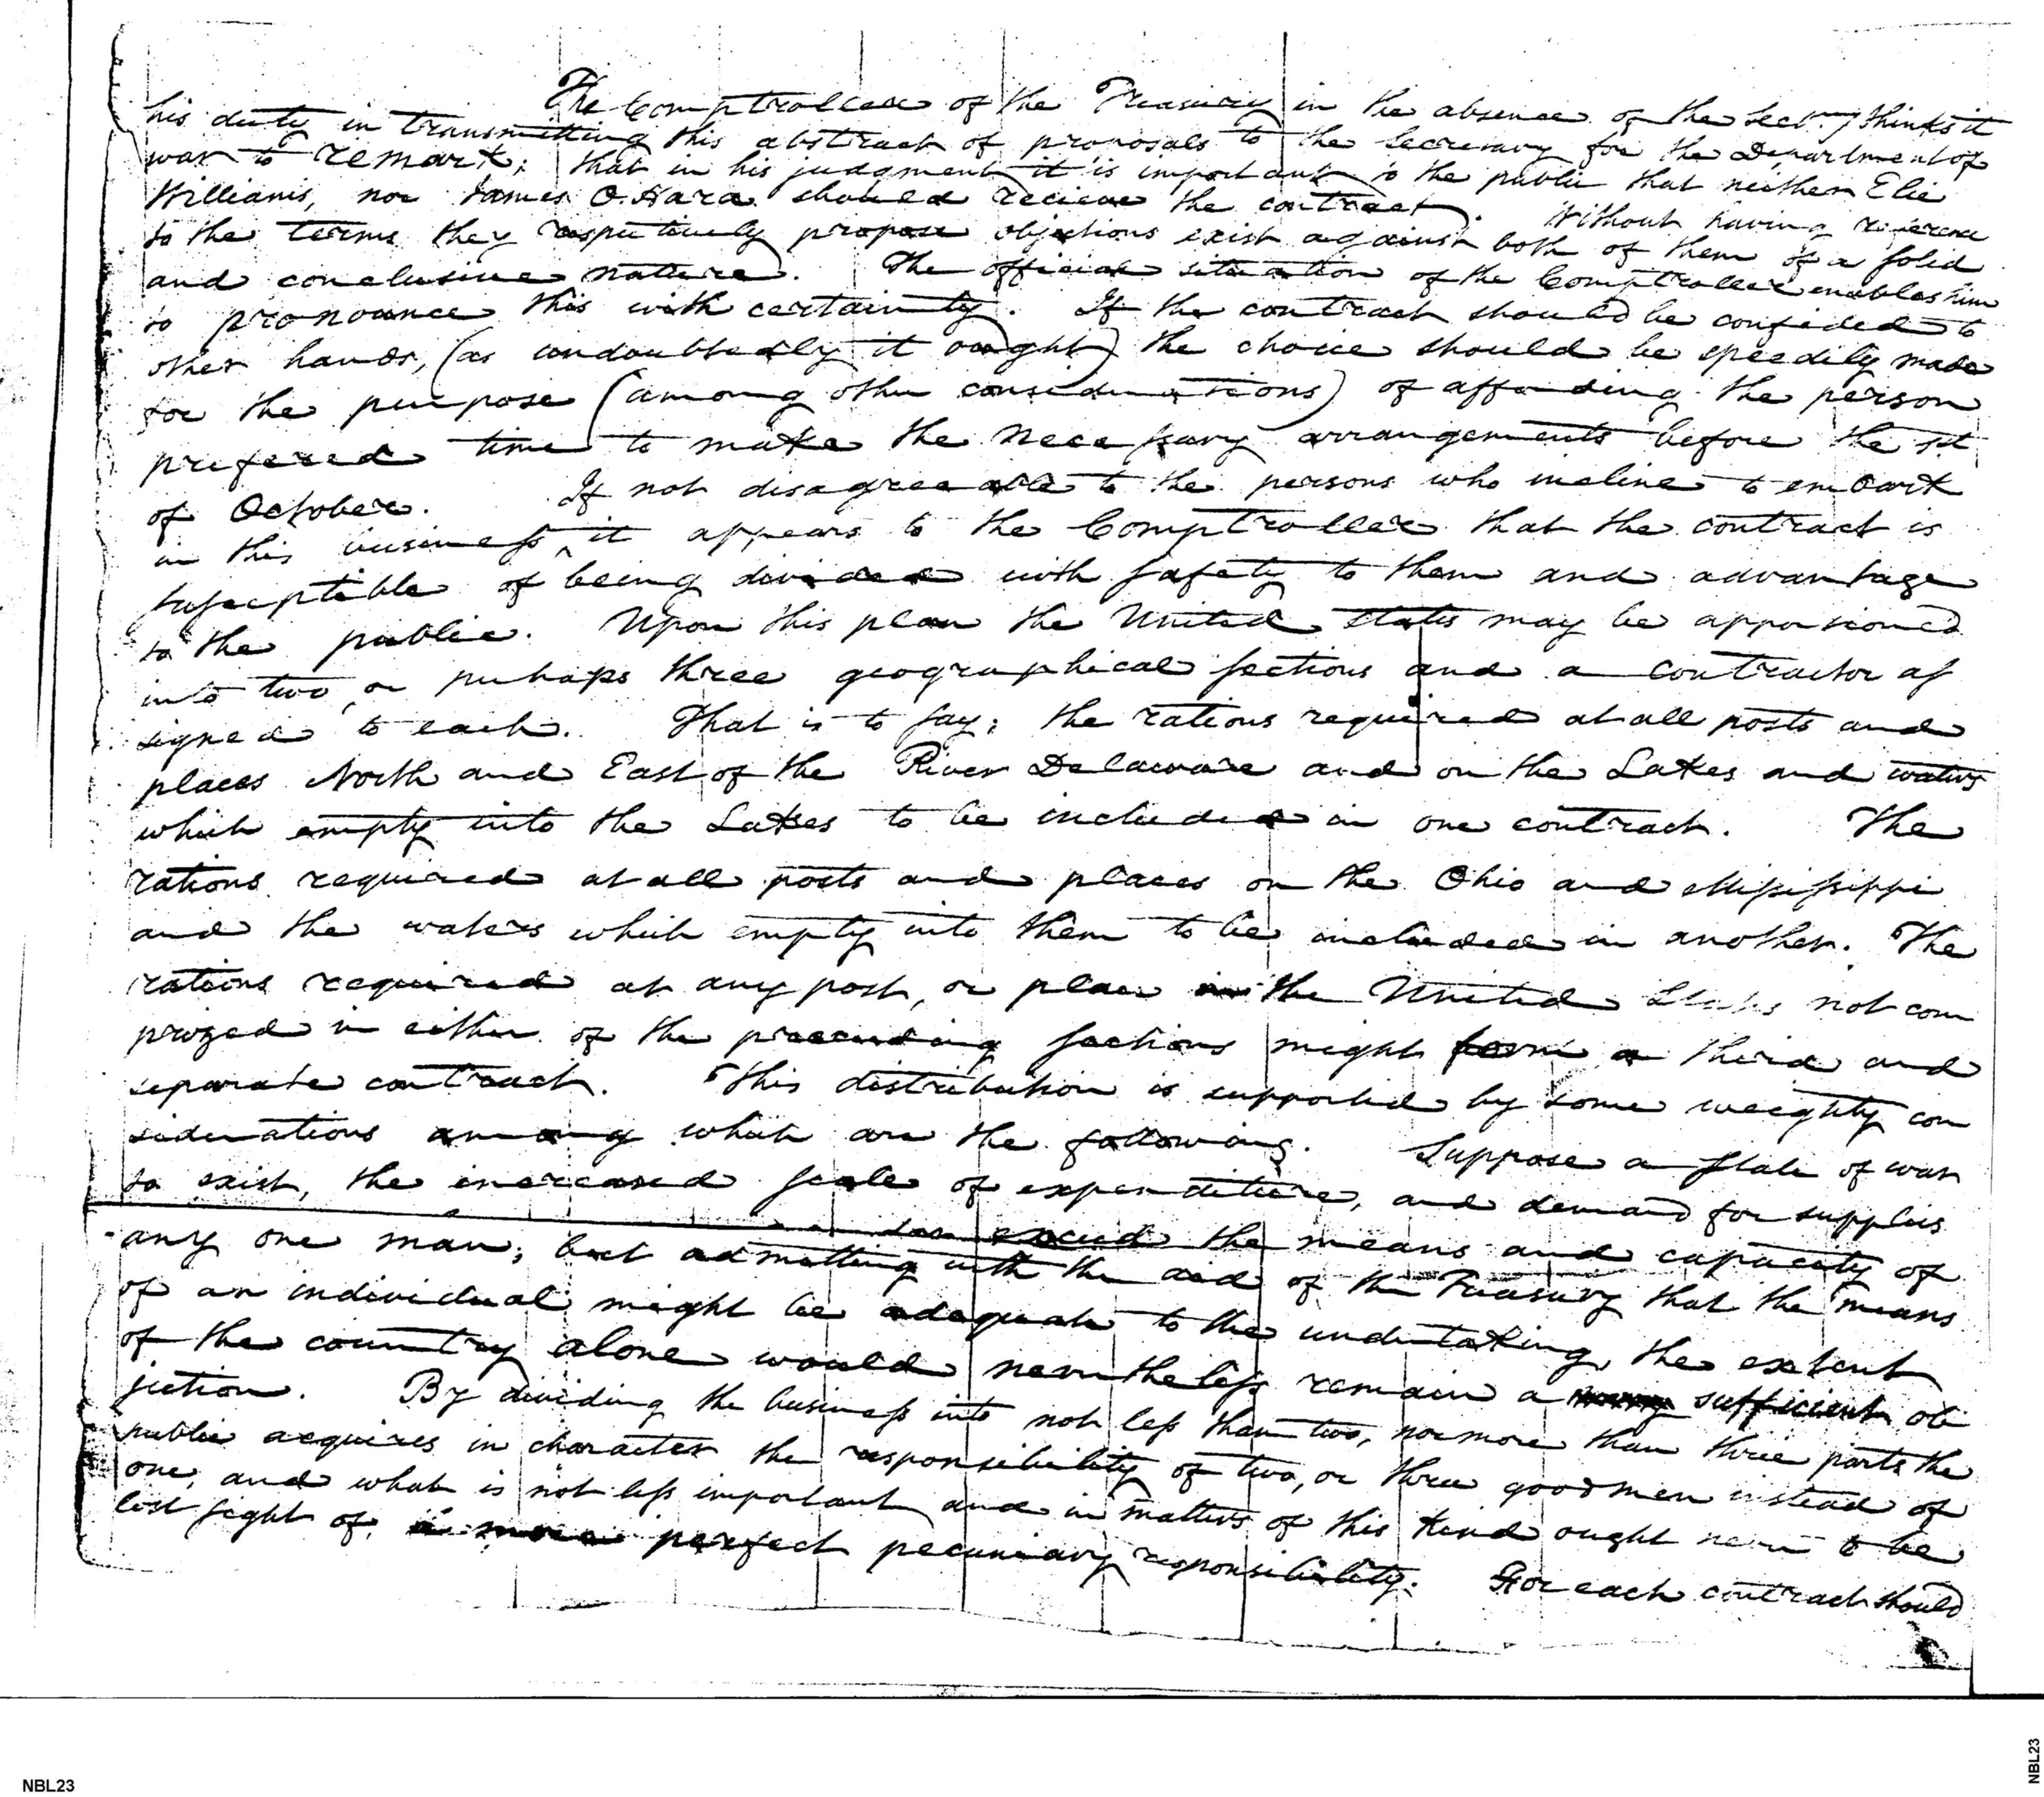 The Comptroller of the Treasury in the absence of the Secr.y thinks it
his duty in transmitting this abstract of proposals to the Secretary for the Department of
war to remark; that in his judgment it is important to the public that neither Elie
Williams, nor James O.Hara should recieve the contract. Without having reference
to the terms they respectively propose objections exist against both of them of a solid
and conclusive nature. The official situation of the Comptroller enables him
to pronounce this with certainty. If the contract should be confided to
other hands, (as undoubtedly it ought) the choice should be speedily made
for the purpose (among other considerations) of affording the person
prefered time to make the necessary arrangements before the 1st
of October. If not disagreeable to the persons who incline to embark
in this business, it appears to the Comptroller that the contract is
susceptible of being divided with safety to them and advantage
to the public. Upon this plan the United States may be apportioned
into two, or perhaps three geographical sections and a contractor as
signed to each. That is to say; the rations required at all posts and
places North and East of the River Delaware and on the Lakes and waters
which empty into the Lakes to be included in one contract. The
rations required at all posts and places on the Ohio and Mississippi
and the waters which empty into them to be included in another. The
rations required at any post, or place in the United States not com
prized in either of the preceeding sections might form a third and
separate contract. This distribution is supported by some weighty con
siderations among which are the following. Suppose a state of war
to exist, the increased scale of expenditure, and demand for supplies
exceed the means and capacity of
any one man; but admitting with the aid of the Treasury that the means
of an individual might be adequate to the undertaking, the extent
of the country alone would nevertheless remain a sufficient ob
jection. By dividing the business into not less than two, nor more than three parts the
public acquires in character the responsibility of two, or three good men instead of
one, and what is not less important and in matters of this kind ought never to be
lost sight of, a more perfect pecuniary responsibility. For each contract should
NBL23
NBL23